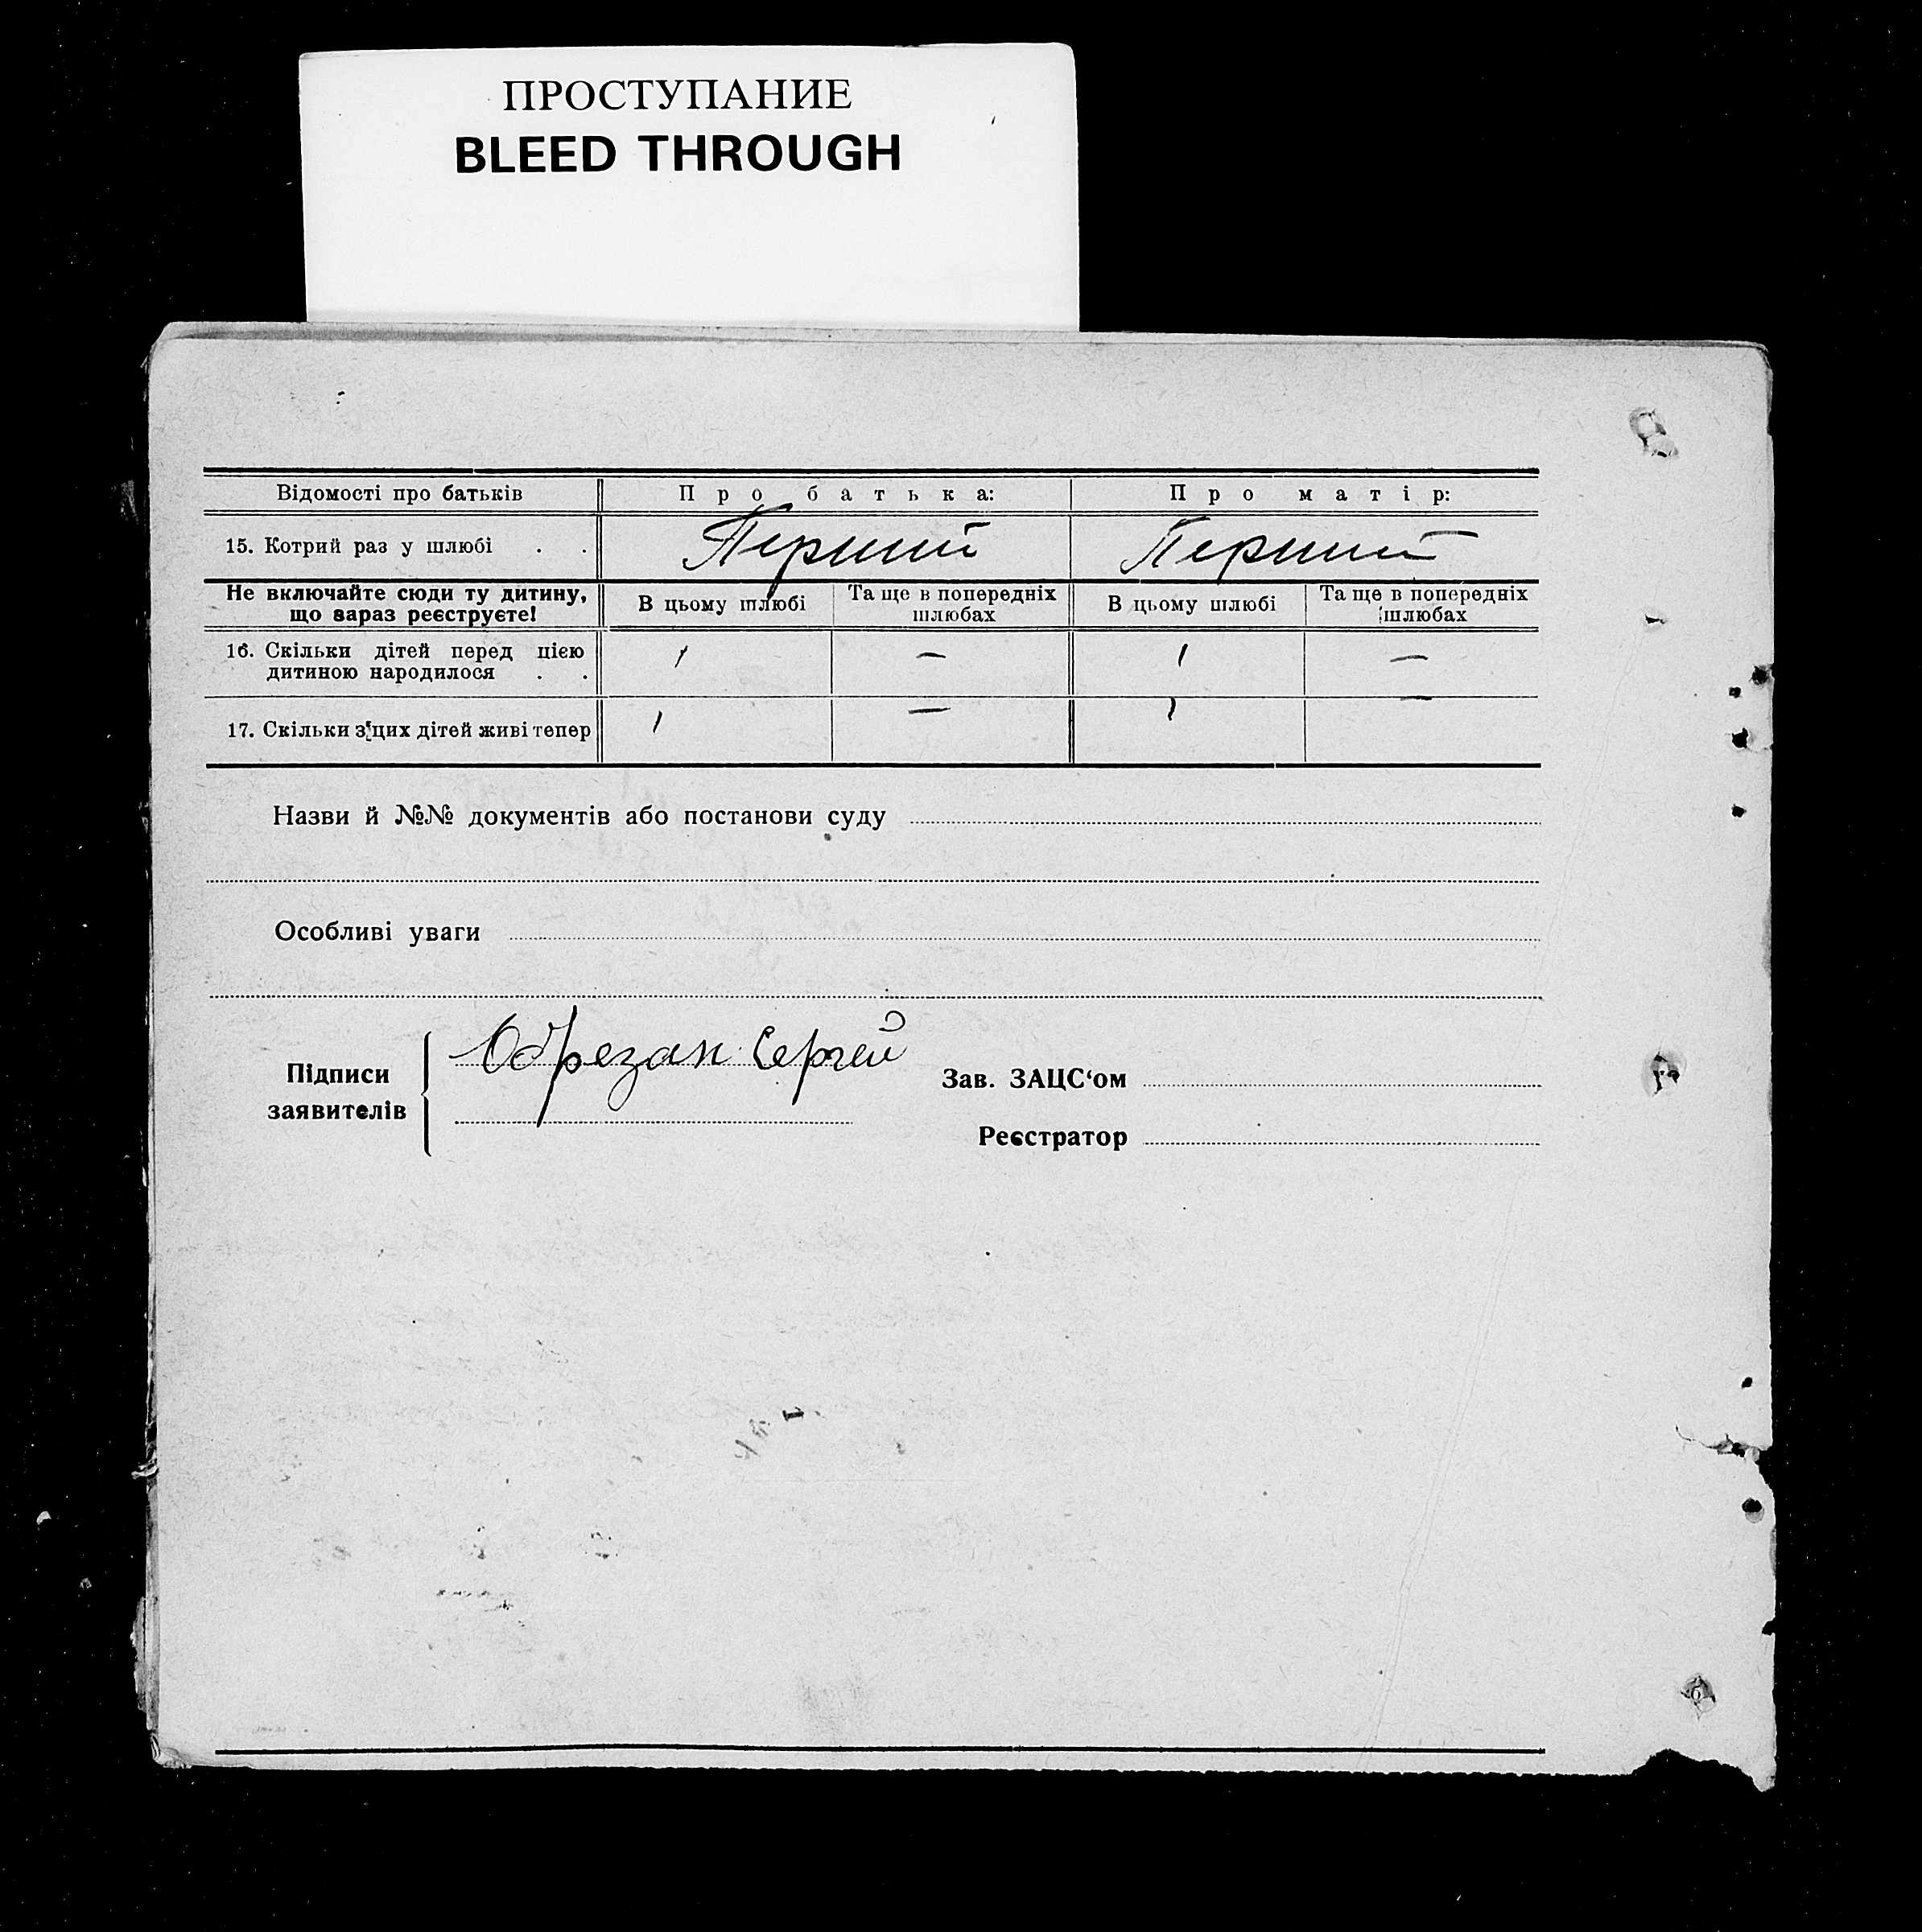 ПРОСТУПАНИЕ
BLEED THROUGH
Відомості про батьків Про батька: Про матір:
15. Котрий раз у шлюбі . . Перший Перший
Не включайте сюди ту дитину, що зараз реєструєте! В цьому шлюбі Та ще в попередніх шлюбах В цьому шлюбі Та ще в попередніх шлюбах
16. Скільки дітей перед цією дитиною народилося . . 1 — 1 —
17. Скільки з цих дітей живі тепер 1 — 1 —
Назви й №№ документів або постанови суду
Особливі уваги
Підписи заявителів Обрезан Сергей
Зав. ЗАЦС‘ом
Реєстратор